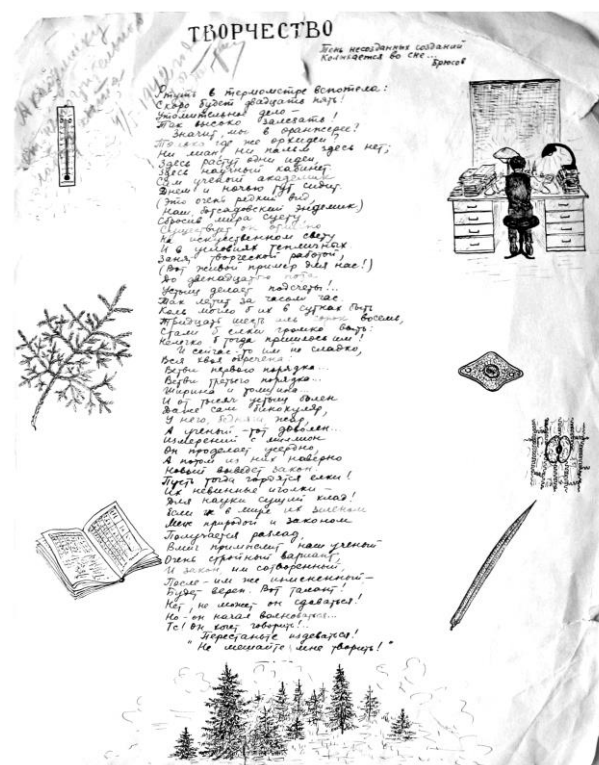 ТВОРЧЕСТВО
Тень несозданных созданий
Колыхается во сне...
Брюсов
Ртуть в термометре вспотела:
Скоро будет двадцать пять!
Утомительное дело –
Так высоко залезать!
Значит, мы в оранжерее?
Только где же орхидеи?
Ни лиан, ни пальм здесь нет,
Здесь растут одни идеи,
Здесь научный кабинет.
Сам ученый академик
Днем и ночью тут сидит.
(Это очень редкий вид,
Наш, ботсадовский эндемик)
Сбросив мира суету,
Существует он обычно
На искусственном свету
И в условиях тепличных
Занят творческой работой,
(Вот живой пример для нас!)
До двенадцатого пота
Устьиц делает подсчеты!..
Так летит за часом час.
Коль могло б их в сутках быть
Тридцать шесть иль сорок восемь,
Стали б елки громко выть:
Нелегко б тогда пришлось им!
И сейчас-то им не сладко,
Вся хвоя обречена:
Ветви первого порядка...
Ветви третьего порядка...
Ширина и толщина...
И от тысяч устьиц болен
Даже сам бинокуляр,
У него, бедняги жар,
А ученый – тот доволен...
Измерений с миллион
Он проделает усердно,
А потом из них наверно
Новый выведет закон.
Пусть тогда гордятся елки!
Их невинные иголки –
Для науки сущий клад!
Если ж в мире их зеленом
Меж природой и законом
Получается разлад,
Вмиг примыслит наш ученый
Очень стройный вариант,
И закон, им сотворенный,
После – им же измененный –
Будет верен. Вот талант!
Нет, не может он сдаваться!
Но – он начал волноваться...
Тс! Он хочет говорить!..
"Перестаньте издеваться!
Не мешайте мне творить!"